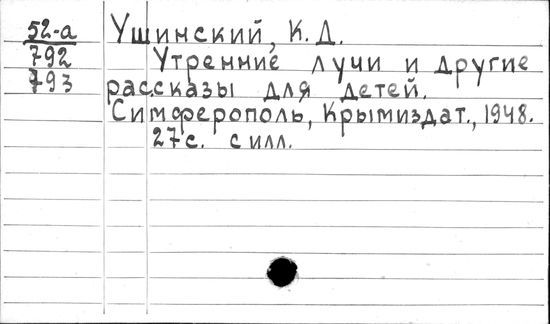 52-а Ушинский, К.Д.
792 Утренние лучи и другие
793 рассказы для детей.
Симферополь, Крымиздат., 1948.
27с. с илл.